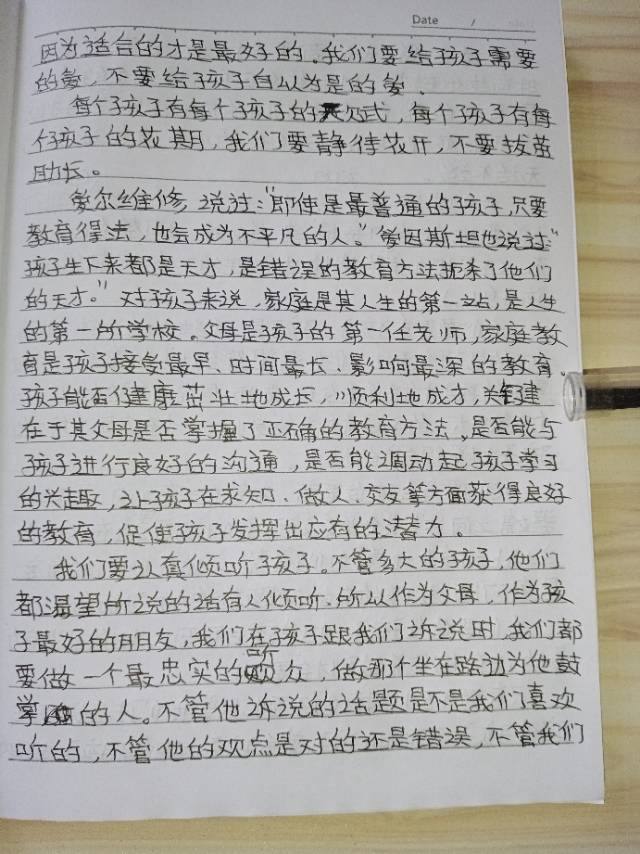 Date /
因为适合的才是最好的。我们要给孩子需要
的爱，不要给孩子自以为是的爱。
每个孩子有每个孩子的花式，每个孩子有每
个孩子的花期，我们要静待花开，不要拔苗
助长。
爱尔维修说过："即使是最普通的孩子，只要
教育得法，也会成为不平凡的人。"爱因斯坦也说过："
孩子生下来都是天才，是错误的教育方法扼杀了他们
的天才。"对孩子来说，家庭是其人生的第一站，是人生
的第一所学校。父母是孩子的第一任老师，家庭教
育是孩子接受最早、时间最长、影响最深的教育。
孩子能否健康茁壮地成长，顺利地成才，关键
在于其父母是否掌握了正确的教育方法。是否能与
孩子进行良好的沟通，是否能调动起孩子学习
的兴趣，让孩子在求知、做人、交友等方面获得良好
的教育，促使孩子发挥出应有的潜力。
我们要认真倾听孩子。不管多大的孩子，他们
都渴望所说的话有人倾听。所以作为父母，作为孩
子最好的朋友，我们在孩子跟我们诉说时，我们都
要做一个最忠实的听众，做那个坐在路边为他鼓
掌的人。不管他诉说的话题是不是我们喜欢
听的，不管他的观点是对的还是错误，不管我们